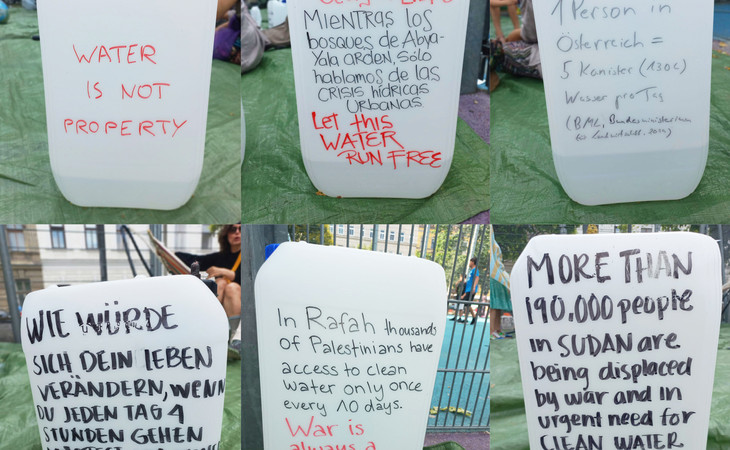 WATER
IS NOT
PROPERTY
MIENTRAS los
bosques de Abya-
Yala arden, sólo
hablamos de las
CRISIS hídricas
Urbanas.
Let this
WATER
RUN FREE
1 Person in
Österreich =
5 Kanister (130l)
Wasser pro Tag
(BML, Bundesministerium
WIE WÜRDE
SICH DEIN LEBEN
VERÄNDERN, WENN
DU JEDEN TAG 4
STUNDEN GEHEN
In Rafah thousands
of Palestinians have
access to clean
water only once
every 10 days.
War is
always a
MORE THAN
190.000 people
in SUDAN are
being displaced
by war and in
urgent need for
CLEAN WATER